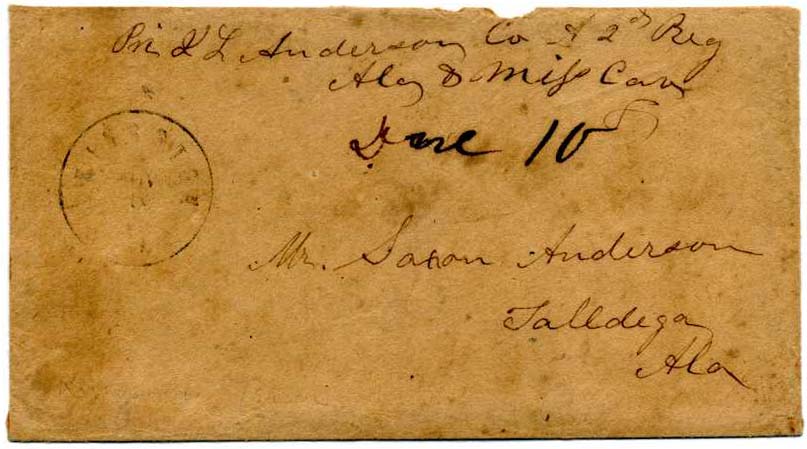 Pri J L Anderson Co A 2nd Reg
Ala & Miss Cav
Due 10
Mr. Saxon Anderson
Talldega
Ala